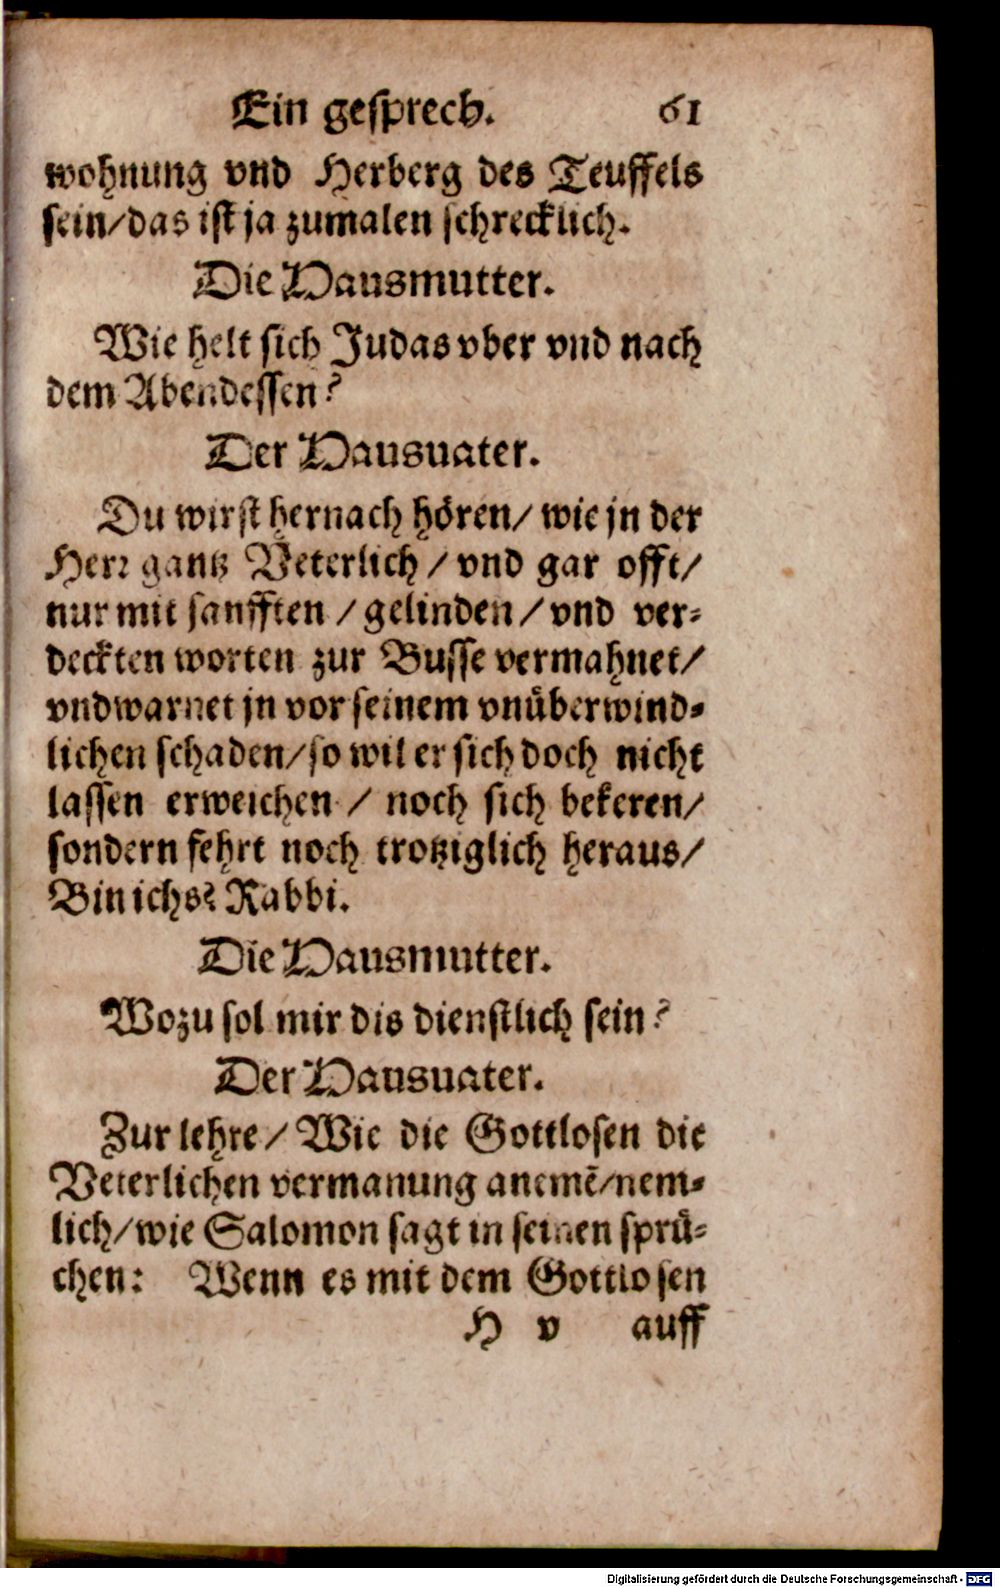 Ein gesprech. 61
wohnung vnd Herberg des Teuffels
sein/das ist ja zumalen schrecklich.
Die Hausmutter.
Wie helt sich Judas vber vnd nach
dem Abendessen?
Der Hausuater.
Du wirst hernach hören/ wie jn der
Herr gantz Veterlich / vnd gar offt/
nur mit sanfften / gelinden / vnd ver-
deckten worten zur Busse vermahnet/
vnd warnet jn vor seinem vnüberwind-
lichen schaden/so wil er sich doch nicht
lassen erweichen / noch sich bekeren/
sondern fehrt noch trotziglich heraus/
Bin ichs? Rabbi.
Die Hausmutter.
Wozu sol mir dis dienstlich sein?
Der Hausuater.
Zur lehre/ Wie die Gottlosen die
Veterlichen vermanung anemē/nem-
lich/wie Salomon sagt in seinen sprü-
chen: Wenn es mit dem Gottlosen
H v auff
Digitalisierung gefördert durch die Deutsche Forschungsgemeinschaft - DFG